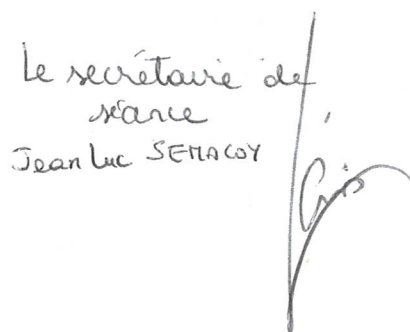 Le secrétaire de
séance
Jean Luc SEMACOY